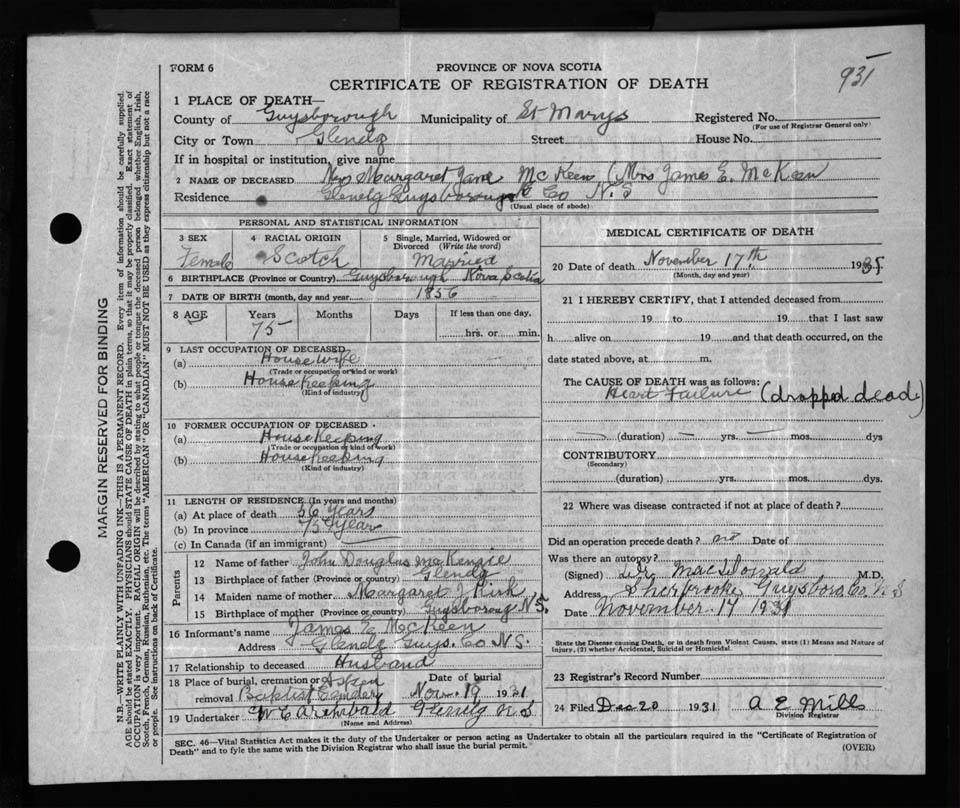 FORM 6
PROVINCE OF NOVA SCOTIA
CERTIFICATE OF REGISTRATION OF DEATH
931
MARGIN RESERVED FOR BINDING
N.B.—WRITE PLAINLY WITH UNFADING INK—THIS IS A PERMANENT RECORD. Every item of information should be carefully supplied.
AGE should be stated EXACTLY. PHYSICIANS should STATE CAUSE OF DEATH in plain terms, so that it may be properly classified. Exact statement of
OCCUPATION is very important. RACIAL ORIGIN will be described by stating to what people or tongue the deceased person belonged whether English, Irish,
Scotch, French, German, Russian, Ruthenian, etc. The terms "AMERICAN" OR "CANADIAN" MUST NOT BE USED as they express citizenship but not a race
or people. See instructions on back of Certificate.
1 PLACE OF DEATH—
County of Guysborough Municipality of St Marys Registered No.
(For use of Registrar General only)
City or Town Glenelg Street House No.
If in hospital or institution, give name
2 NAME OF DECEASED Mrs Margaret Jane McKeen (Mrs James E. McKeen
Residence Glenelg Guysborough Co N.S
(Usual place of abode)
PERSONAL AND STATISTICAL INFORMATION
3 SEX Female
4 RACIAL ORIGIN Scotch
5 Single, Married, Widowed or Divorced (Write the word) Married
6 BIRTHPLACE (Province or Country) Guysborough Nova Scotia
7 DATE OF BIRTH (month, day and year) 1856
8 AGE Years 75 Months Days If less than one day, hrs. or min.
9 LAST OCCUPATION OF DECEASED
(a) House wife
(Trade or occupation or kind or work)
(b) Housekeeping
(Kind of industry)
10 FORMER OCCUPATION OF DECEASED
(a) Housekeeping
(Trade or occupation or kind of work)
(b) Housekeeping
(Kind of industry)
11 LENGTH OF RESIDENCE (In years and months)
(a) At place of death 56 years
(b) In province 75 year
(c) In Canada (if an immigrant)
Parents
12 Name of father John Douglas McKenzie
13 Birthplace of father (Province or country) Glenelg
14 Maiden name of mother Margaret J Kirk
15 Birthplace of mother (Province or country) Guysboroug N S.
16 Informant's name James E McKeen
Address Glenelg Guys. Co N.S.
17 Relationship to deceased Husband
18 Place of burial, cremation or removal Baptist Cemetery Date of burial Nov. 19 1931
19 Undertaker W C Archibald Glenelg N S
(Name and Address)
MEDICAL CERTIFICATE OF DEATH
20 Date of death November 17th 1931
(Month, day and year)
21 I HEREBY CERTIFY, that I attended deceased from
19 to 19 that I last saw
h alive on 19 and that death occurred, on the
date stated above, at m.
The CAUSE OF DEATH was as follows:
Heart Failure (dropped dead)
(duration) yrs. mos. dys
CONTRIBUTORY
(Secondary)
(duration) yrs. mos. dys.
22 Where was disease contracted if not at place of death?
Did an operation precede death? no Date of
Was there an autopsy?
(Signed) MacDonald M.D.
Address Sherbrooke Guysboro Co. N S
Date November 17 1931
State the Disease causing Death, or in death from Violent Causes, state (1) Means and Nature of
Injury, (2) whether Accidental, Suicidal or Homicidal.
23 Registrar's Record Number
24 Filed Dec 20 1931 A E Mills
Division Registrar
SEC. 46—Vital Statistics Act makes it the duty of the Undertaker or person acting as Undertaker to obtain all the particulars required in the "Certificate of Registration of
Death" and to fyle the same with the Division Registrar who shall issue the burial permit.
(OVER)